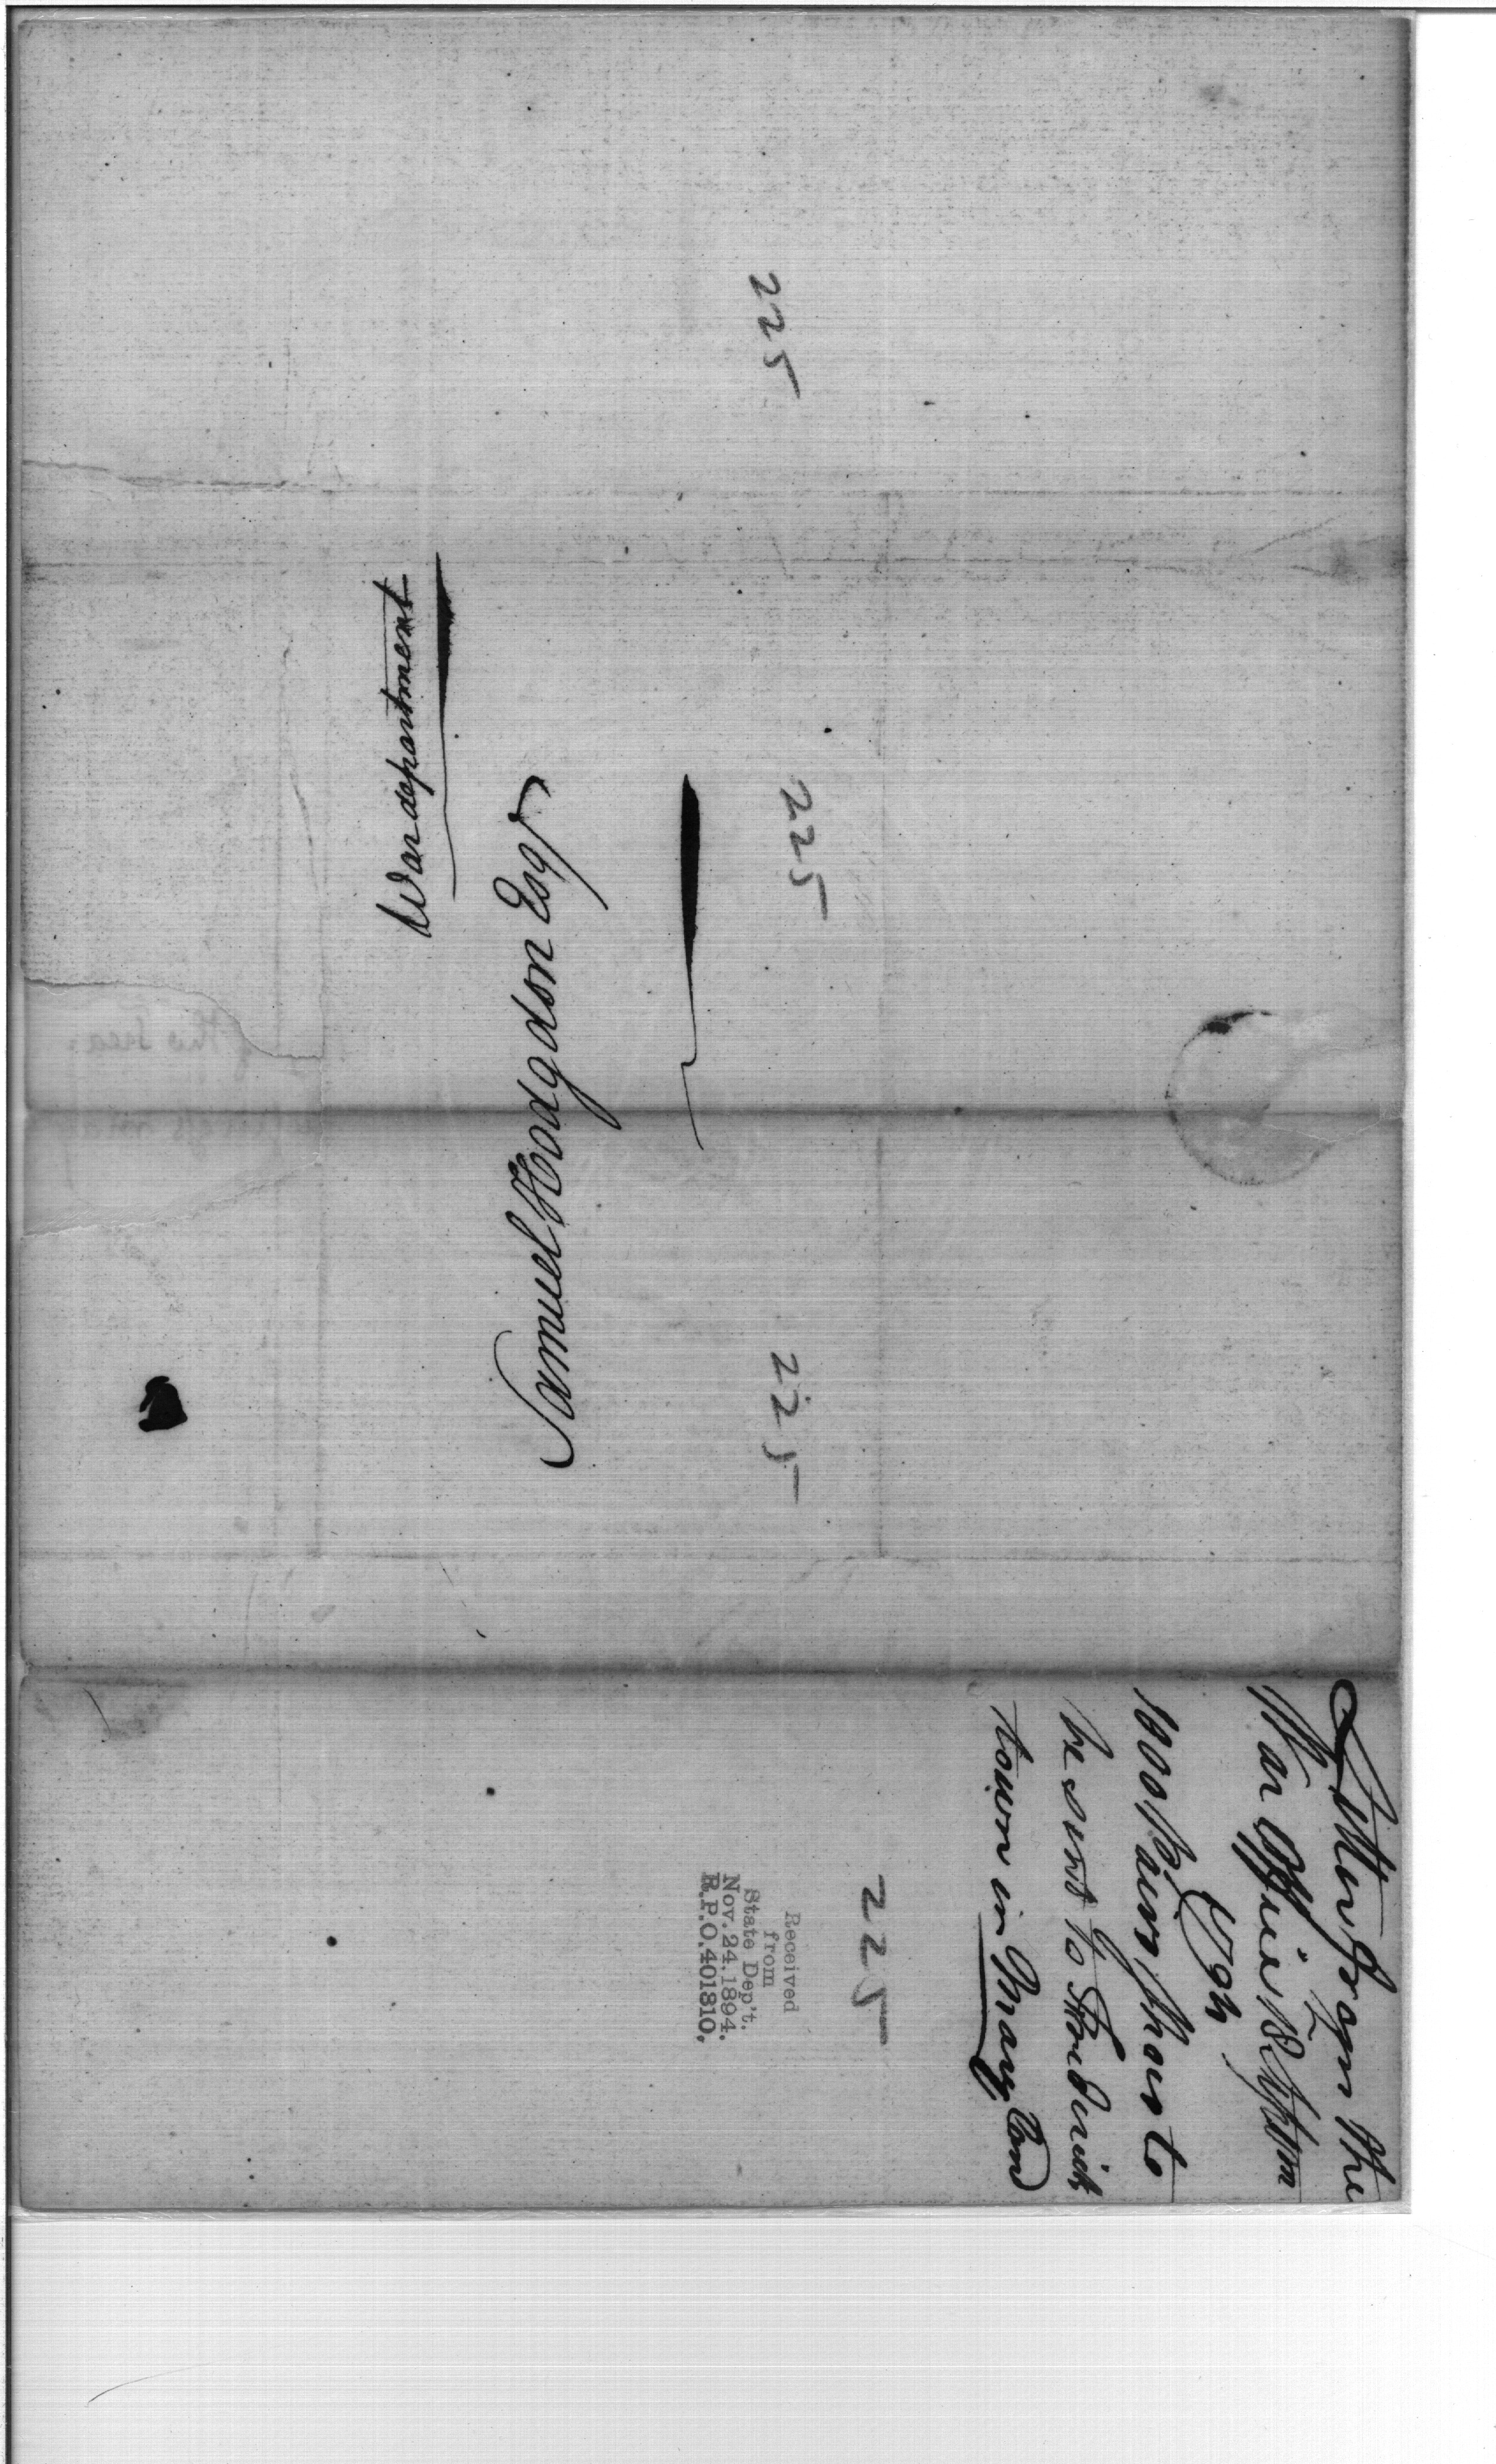 War department
Samuel Hodgdon Esqr
225
225
225
225
Letter from the
War Office 18 Septem
1794
1000 Pairs Shoes to
be sent to Frederick
town in Maryland
Received
from
State Dep't.
Nov. 24, 1894.
R.P.O. 401810,